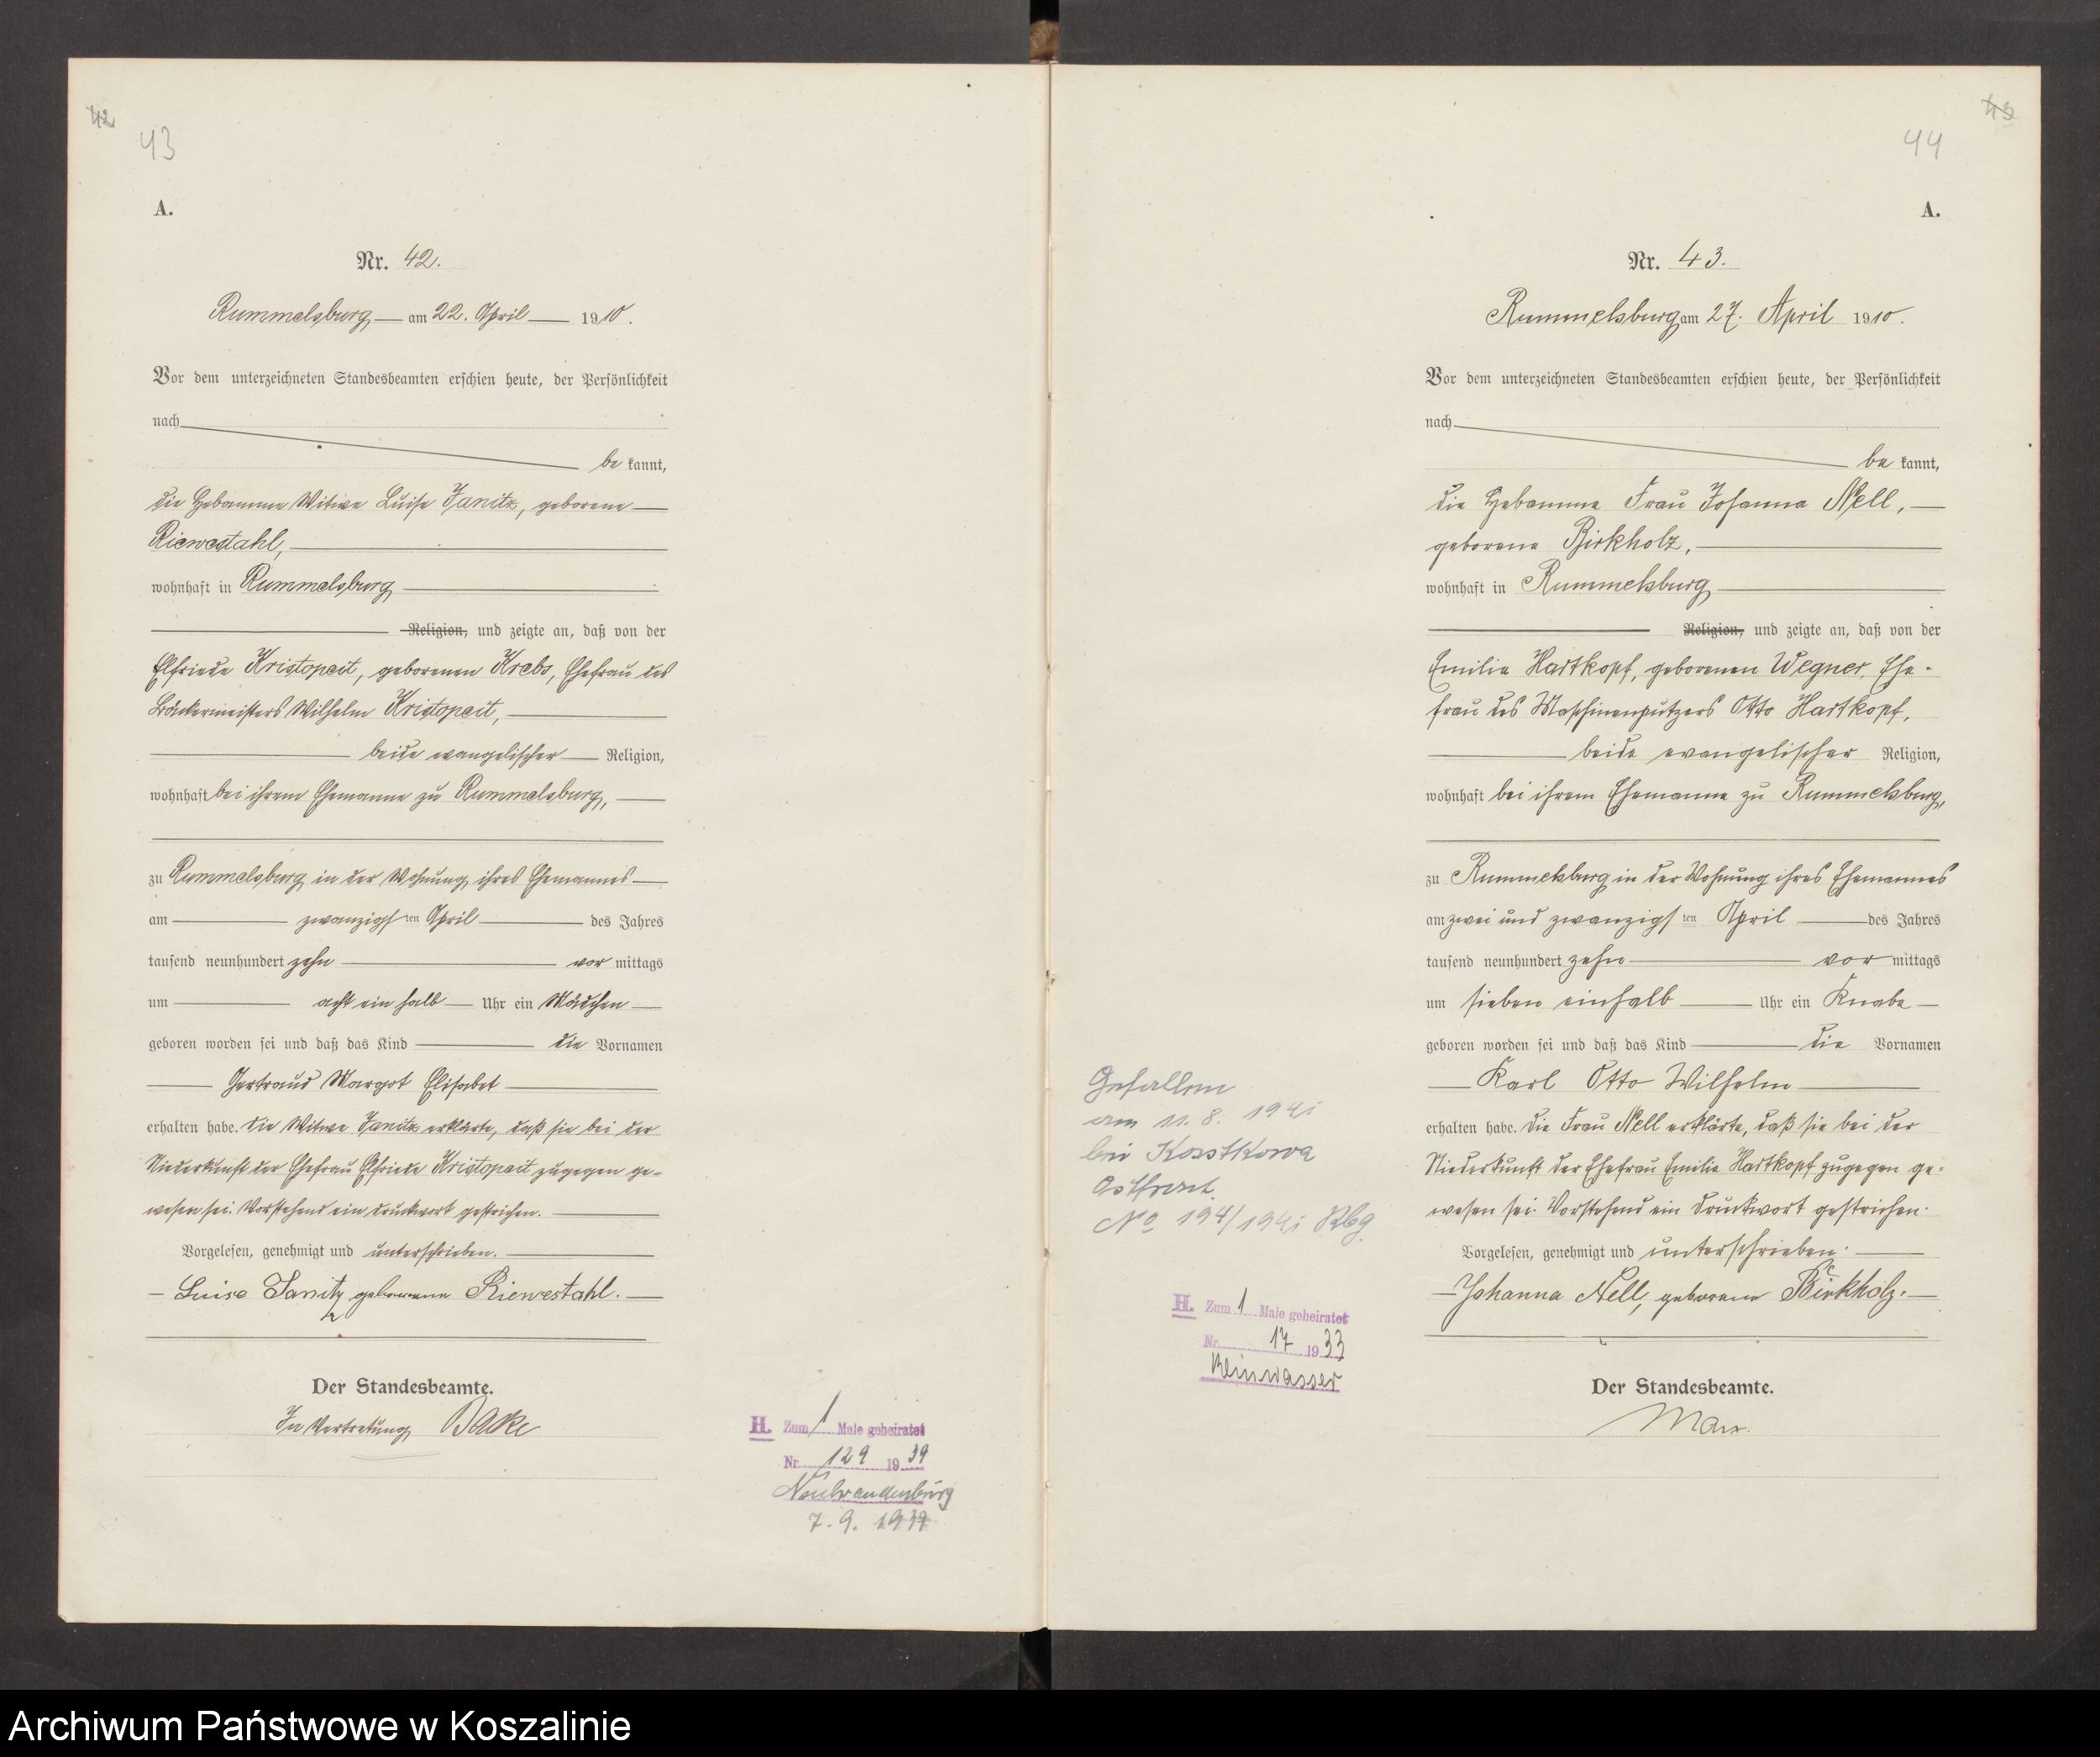 42
43
A.
Nr. 42.
Rummelsburg am 22. April 1910.
Vor dem unterzeichneten Standesbeamten erschien heute, der Persönlichkeit
nach
be kannt,
die Hebamme Witwe Luise Janitz, geborene
Riewestahl,
wohnhaft in Rummelsburg
Religion, und zeigte an, daß von der
Elfriede Kristopeit, geborenen Krebs, Ehefrau des
Bäckermeisters Wilhelm Kristopeit,
beide evangelischer Religion,
wohnhaft bei ihrem Ehemanne zu Rummelsburg,
zu Rummelsburg in der Wohnung ihres Ehemannes
am zwanzigsten April des Jahres
tausend neunhundert zehn vor mittags
um acht ein halb Uhr ein Mädchen
geboren worden sei und daß das Kind die Vornamen
Gertraud Margot Elisabet
erhalten habe. Die Witwe Janitz erklärte, daß sie bei der
Niederkunft der Ehefrau Elfriede Kristopeit zugegen ge-
wesen sei. Vorstehend ein Druckwort gestrichen.
Vorgelesen, genehmigt und unterschrieben.
Luise Janitz geborene Riewestahl.
Der Standesbeamte.
In Vertretung
H. Zum 1 Male geheiratet
Nr. 129 1939
Neubrandenburg
7. 9. 1939
43
44
A.
Nr. 43.
Rummelsburg am 27. April 1910.
Vor dem unterzeichneten Standesbeamten erschien heute, der Persönlichkeit
nach
be kannt,
die Hebamme Frau Johanna Nell,
geborene Birkholz,
wohnhaft in Rummelsburg
Religion, und zeigte an, daß von der
Emilie Hartkopf, geborenen Wegner, Ehe-
frau des Maschinenputzers Otto Hartkopf,
beide evangelischer Religion,
wohnhaft bei ihrem Ehemanne zu Rummelsburg,
zu Rummelsburg in der Wohnung ihres Ehemannes
am zwei und zwanzigsten April des Jahres
tausend neunhundert zehn vor mittags
um sieben einhalb Uhr ein Knabe
geboren worden sei und daß das Kind die Vornamen
Karl Otto Wilhelm
erhalten habe. Die Frau Nell erklärte, daß sie bei der
Niederkunft der Ehefrau Emilie Hartkopf zugegen ge-
wesen sei. Vorstehend ein Druckwort gestrichen.
Vorgelesen, genehmigt und unterschrieben.
Johanna Nell, geborene Birkholz.
Der Standesbeamte.
Gefallen
am 11. 8. 1941
bei Kosstkowa
Ostfront.
No 194/1941 Rbg.
H. Zum 1 Male geheiratet
Nr. 17 1933
Reinwasser
Archiwum Państwowe w Koszalinie